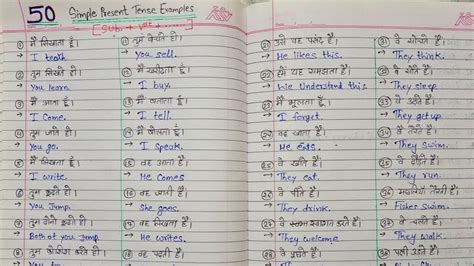 50 Simple Present Tense Examples
[Sub. + V1 + ......]
① मैं सिखाता हूँ।
→ I teach
② तुम सिखते हो।
→ You learn.
③ मैं आता हूँ।
→ I Come.
④ तुम जाते हो।
→ You go.
⑤ मैं लिखता हूँ।
→ I write
⑥ तुम कूदते हो।
→ You Jump.
⑦ तुम दोनों कूदते हो।
→ Both of you Jump.
⑪ तुम बेचते हो।
→ You sell.
⑫ मैं खरीदता हूँ।
→ I buy.
⑬ मैं बताता हूँ।
→ I tell.
⑭ मैं बोलता हूँ।
→ I Speak.
⑮ वह आता है।
→ He Comes
⑯ वह जाती है।
→ She goes.
⑰ वह लिखता है।
→ He writes.
⑱ वह पढ़ती है।
㉑ उसे यह पसंद है।
→ He likes this.
㉒ हमें यह समझता है।
→ We Understand this.
㉓ मैं भूलता हूँ।
→ I forget.
㉔ वह खाता है।
→ He Eats.
㉕ वे खाते हैं।
→ They eat.
㉖ वे पीते हैं।
→ They drink.
㉗ वे स्वागत करते हैं।
→ They welcome
㉘ वे पूछते हैं।
㉛ वे सोचते हैं।
→ They think.
㉜ वे सोते हैं।
→ They sleep.
㉝ वे उठते हैं।
→ They get up
㉞ वे तैरते हैं।
→ They Swim.
㉟ वे दौड़ते हैं।
→ They run.
㊱ मछलियाँ तैरती हैं।
→ Fishes Swim.
㊲ वे चलते हैं।
→ They walk
㊳ पक्षी उड़ते हैं।